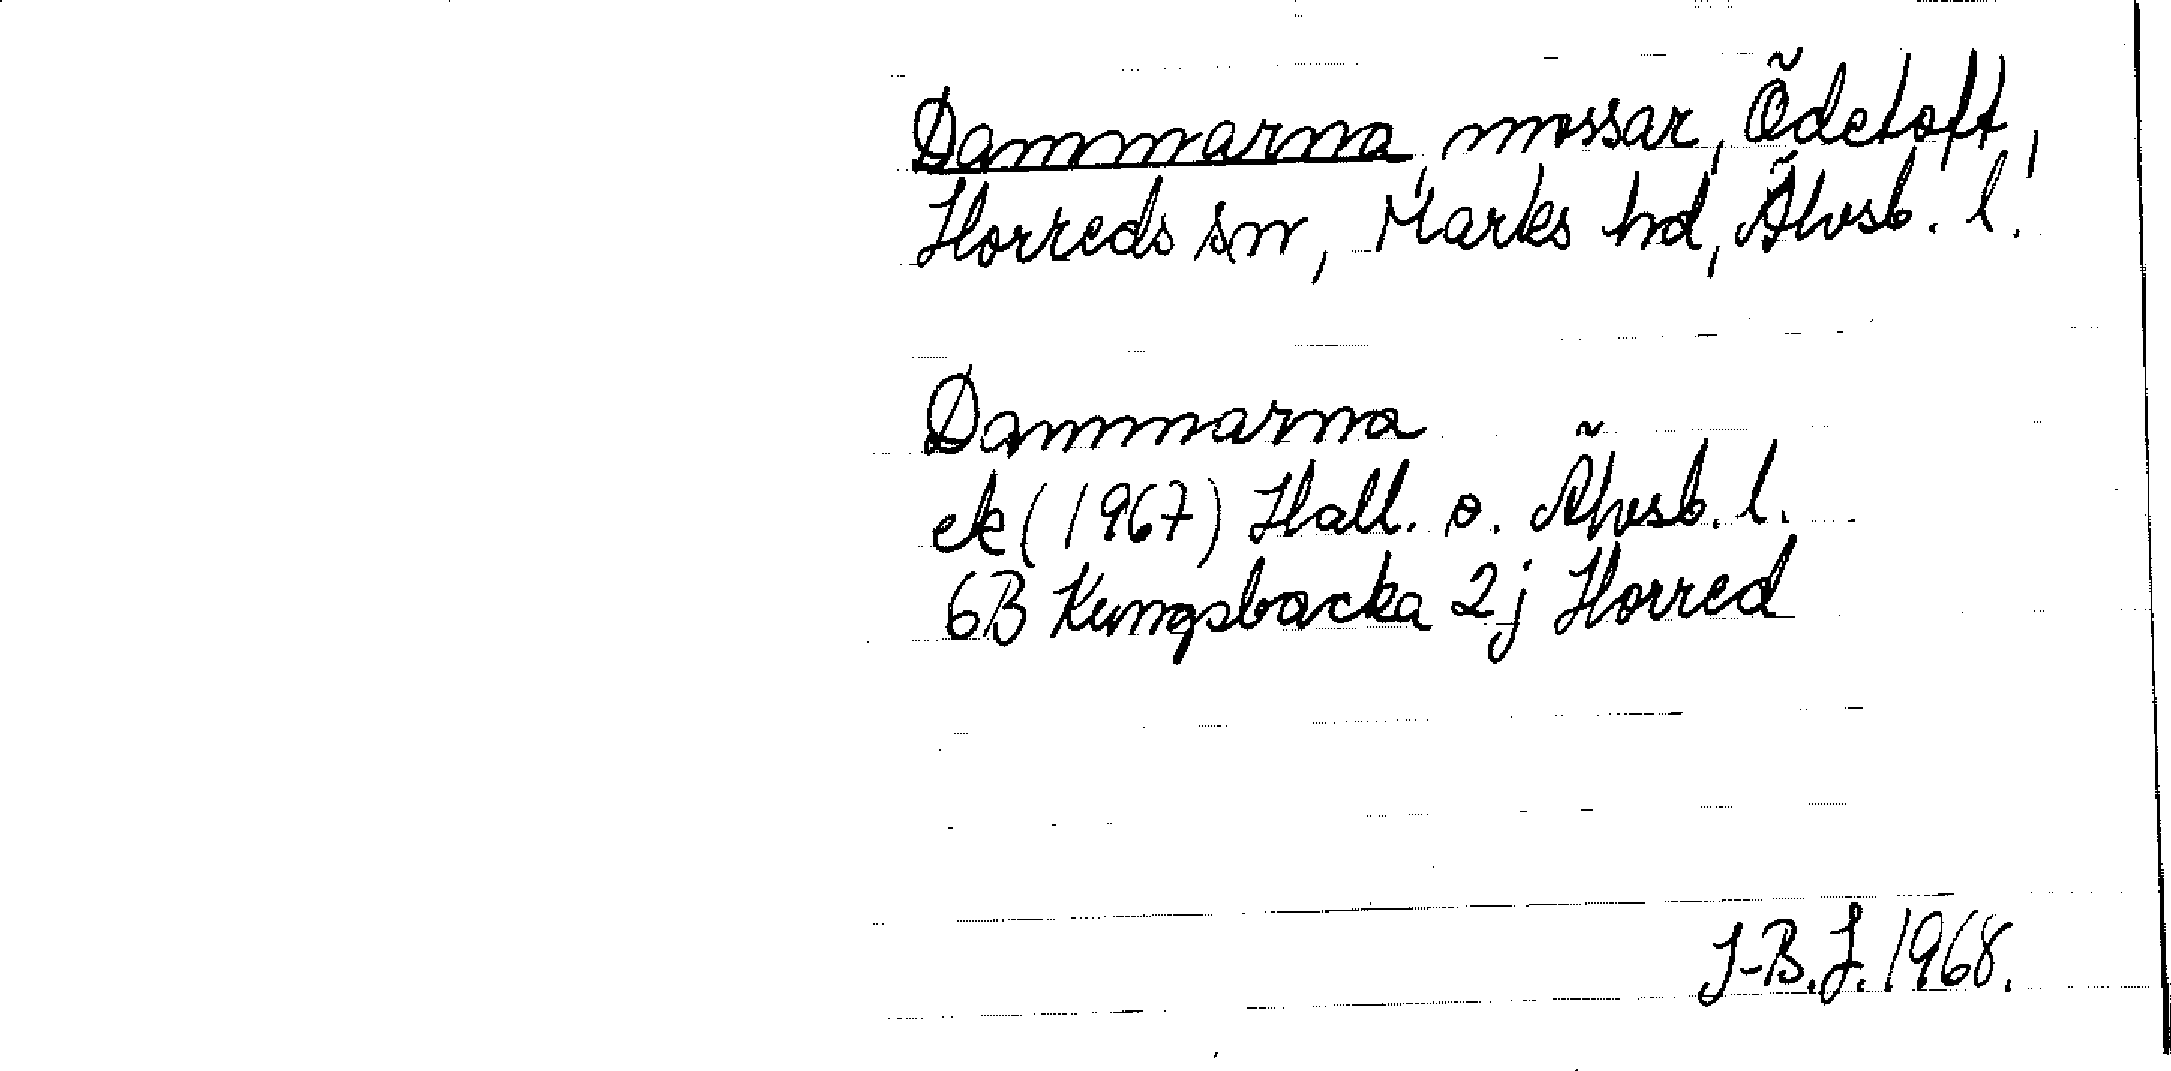 Dammarna, mossar, Ödetoft,
Horreds sn, Marks hd, Älvsb. l.
Dammarna
ek (1967) Hall. o. Älvsb. l.
6B Kungsbacka 2j Horred
J-B.J. 1968.